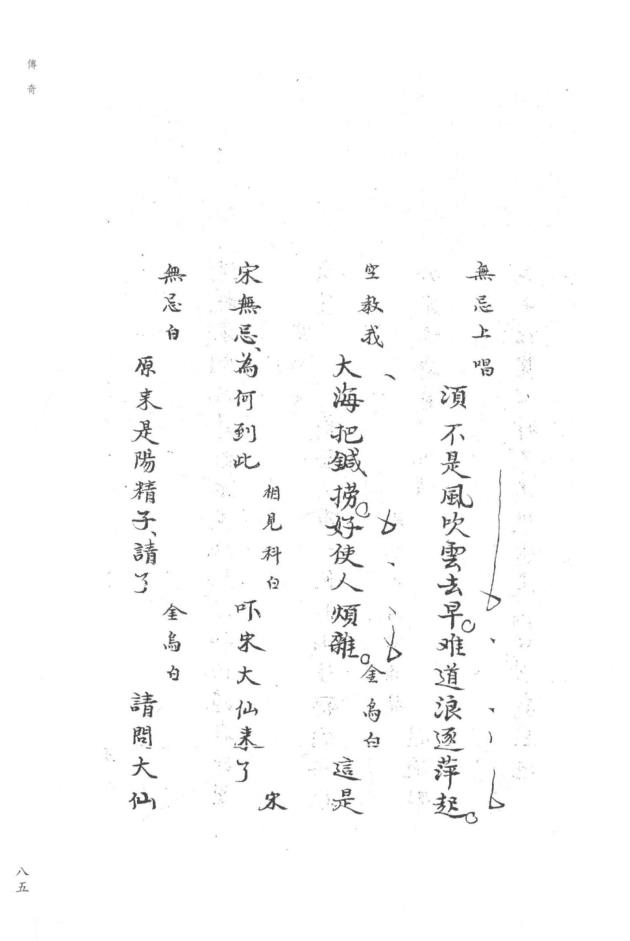 無忌上唱 湏不是風吹雲去早。难道浪逐萍起。
空教我、大海把鍼捞。好使人煩雜。金烏白 這是
宋無忌、為何到此 相見科白 吓宋大仙来了 宋
無忌白 原来是陽精子、請了 金烏白 請問大仙
傳奇
八五